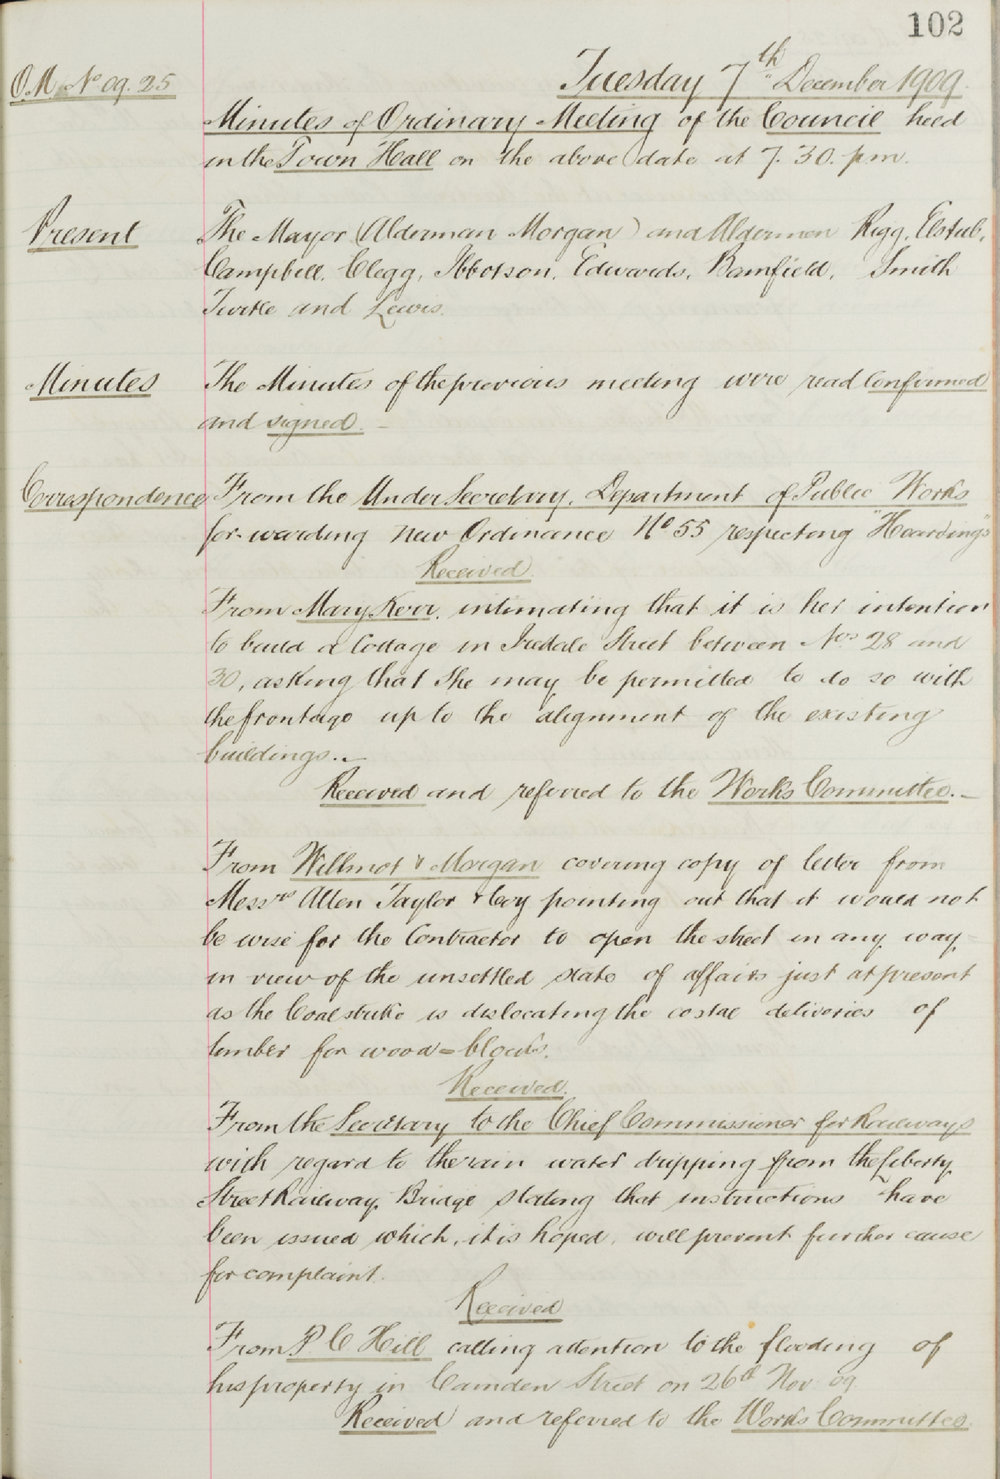 102
O.M. No 09.25
Tuesday 7th December 1909.
Minutes of Ordinary Meeting of the Council held
in the Town Hall on the above date at 7.30. pm.
Present
The Mayor (Alderman Morgan) and Aldermen Rigg, Elstub,
Campbell, Clegg, Ibbotson, Edwards, Bamfield, Smith
Turtle and Lewis.
Minutes
The Minutes of the previous meeting were read Confirmed
and signed. –
Correspondence
From the Under Secretary, Department of Public Works
for-warding New Ordinance No 55 respecting "Hoardings"
Received.
From Mary Kerr, intimating that it is her intention
to build a Cottage in Iredale Street between Nos 28 and
30, asking that She may be permitted to do so with
the frontage up to the alignment of the existing
buildings. –
Received and referred to the Works Committee. –
From Willmot & Morgan covering copy of letter from
Messrs Allen Taylor & Coy pointing out that it would not
be wise for the Contractor to open the street in any way
in view of the unsettled state of affairs just at present
as the Coal strike is dislocating the costal deliveries of
timber for wood=blocks.
Received.
From the Secretary to the Chief Commissioner for Railways
with regard to the rain water dripping from the Liberty
Street Railway Bridge stating that instructions have
been issued which, it is hoped, will prevent further cause
for complaint.
Received
From P. C Hill calling attention to the flooding of
his property in Camden Street on 26th Nov 09.
Received and referred to the Works Committee.